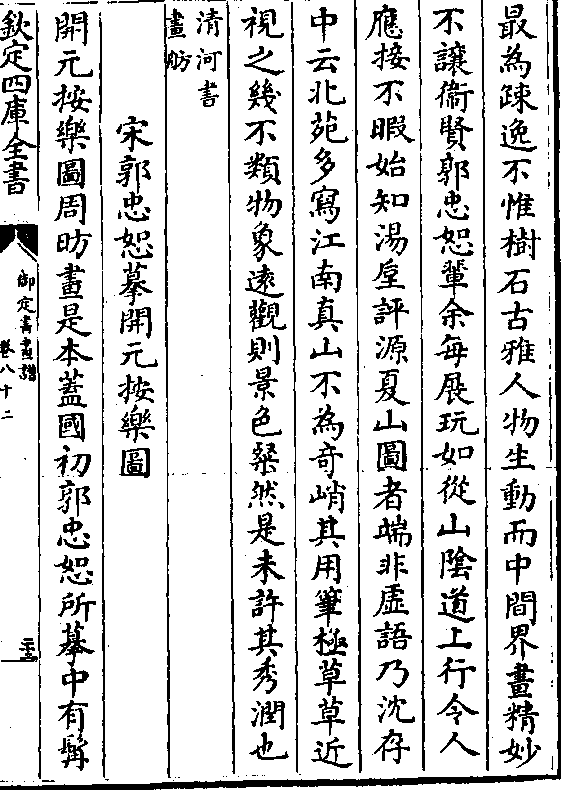 最為踈逸不惟樹石古雅人物生動而中間界畫精妙
不讓衞賢郭忠恕輩余每展玩如從山隂道上行令人
應接不暇始知湯垕評源夏山圖者端非虛語乃沈存
中云北苑多寫江南真山不為奇峭其用筆極草草近
視之幾不類物象遠觀則景色粲然是未許其秀潤也
清河書
畫舫
宋郭忠恕摹開元按樂圖
開元按樂圖周昉畫是本蓋國初郭忠恕所摹中有髯
欽定四庫全書
御定書畫譜
卷八十二
二十三